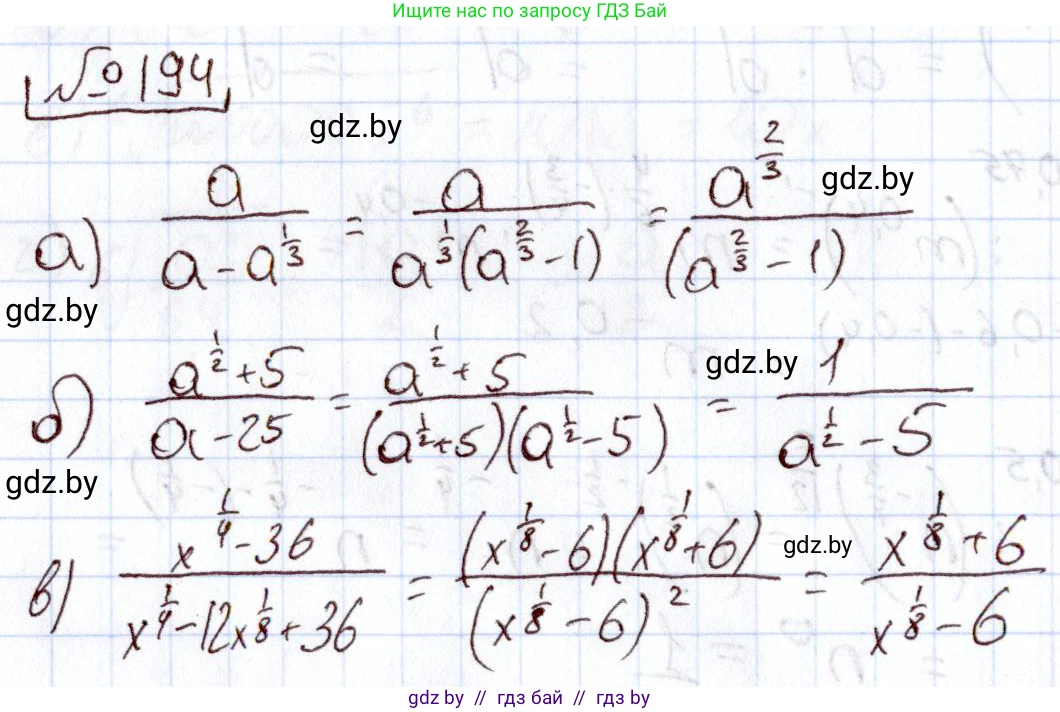 Ищите нас по запросу ГДЗ Бай
№ 194
gdz.by
а) a / (a - a^(1/3)) = a / (a^(1/3)(a^(2/3) - 1)) = a^(2/3) / (a^(2/3) - 1) gdz.by
gdz.by
б) (a^(1/2) + 5) / (a - 25) = (a^(1/2) + 5) / ((a^(1/2) + 5)(a^(1/2) - 5)) = 1 / (a^(1/2) - 5) gdz.by
gdz.by
в) (x^(1/4) - 36) / (x^(1/4) - 12x^(1/8) + 36) = ((x^(1/8) - 6)(x^(1/8) + 6)) / (x^(1/8) - 6)^2 = (x^(1/8) + 6) / (x^(1/8) - 6) gdz.by
gdz.by // гдз бай // gdz by